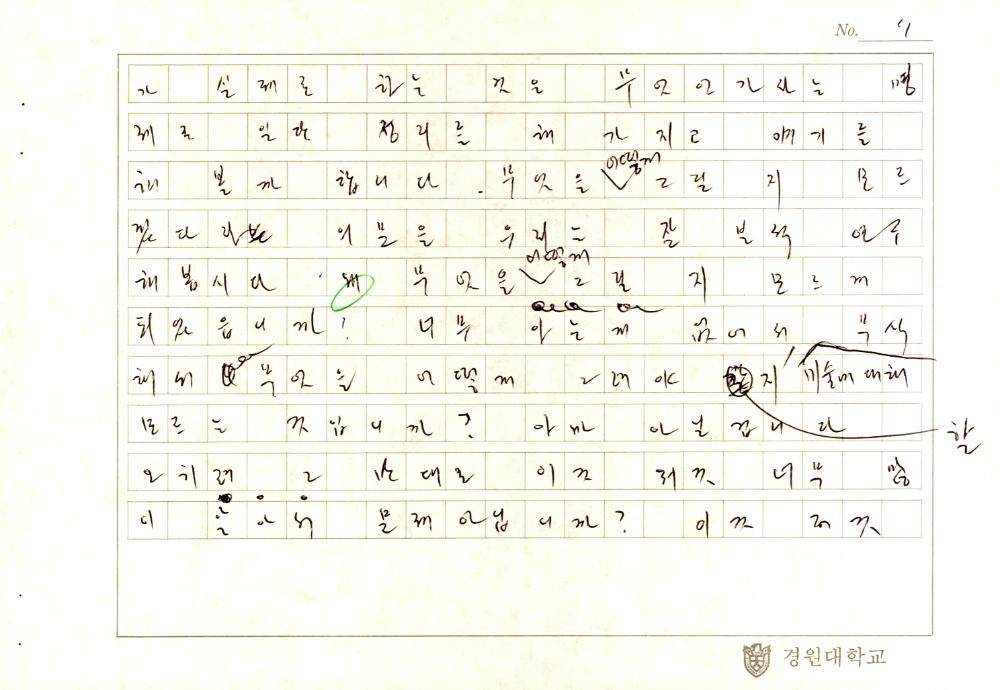 No. 4
가 실제로 하는 것은 무엇인가라는 명
제로 일단 정리를 해 가지고 얘기를
해 볼까 합니다. 무엇을 어떻게 그릴 지 모르
겠다라는 의문을 우리는 잘 분석 연구
해 봅시다. 왜 무엇을 어떻게 그릴 지 모르게
되었읍니까? 너무 아는게 없어서 무식
해서 무엇을 어떻게 그려야 할지 미술에 대해
모르는 것입니까? 아마 아닐겁니다
오히려 그 반대로 이것 저것 너무 많
이 알아서 문제 아닙니까? 이것 저것
경원대학교